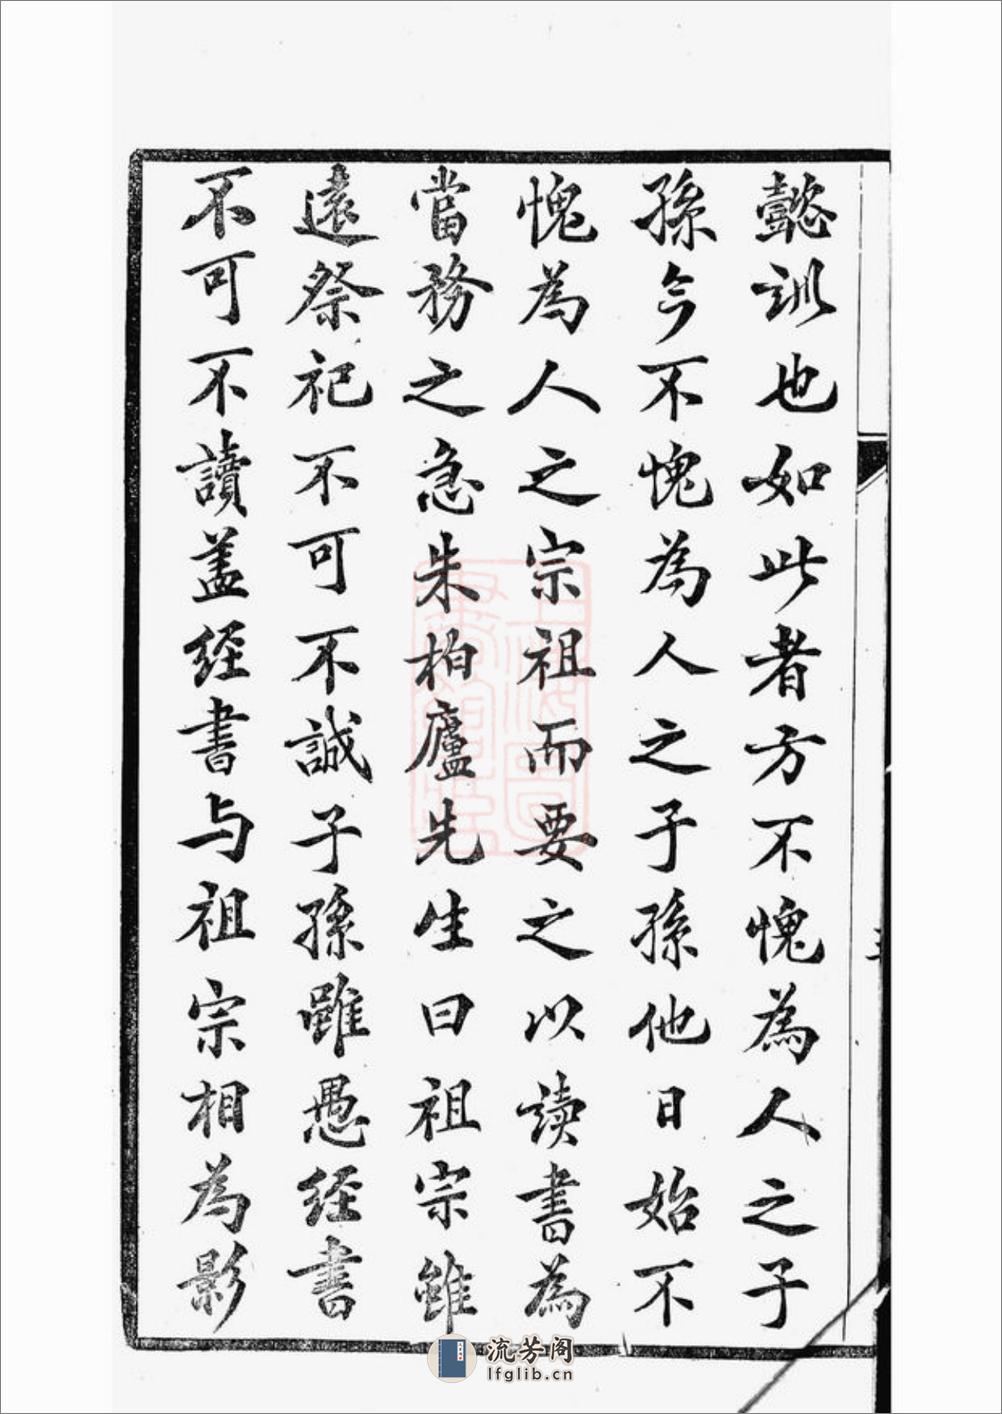 懿訓也如此者方不愧為人之子
孫今不愧為人之子孫他日始不
愧為人之宗祖而要之以讀書為
當務之急朱柏廬先生曰祖宗雖
遠祭祀不可不誠子孫雖愚経書
不可不讀盖経書与祖宗相為影
流芳阁
lfglib.cn